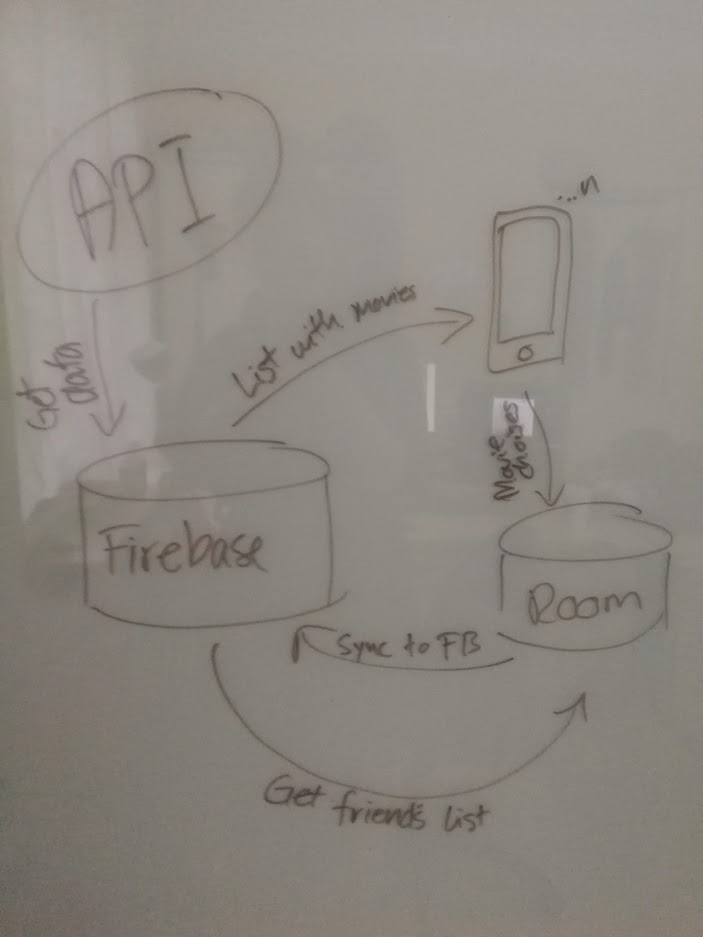 API
...n
List with movies
Get
data
Movie
choises
Firebase
Room
Sync to FB
Get friends list